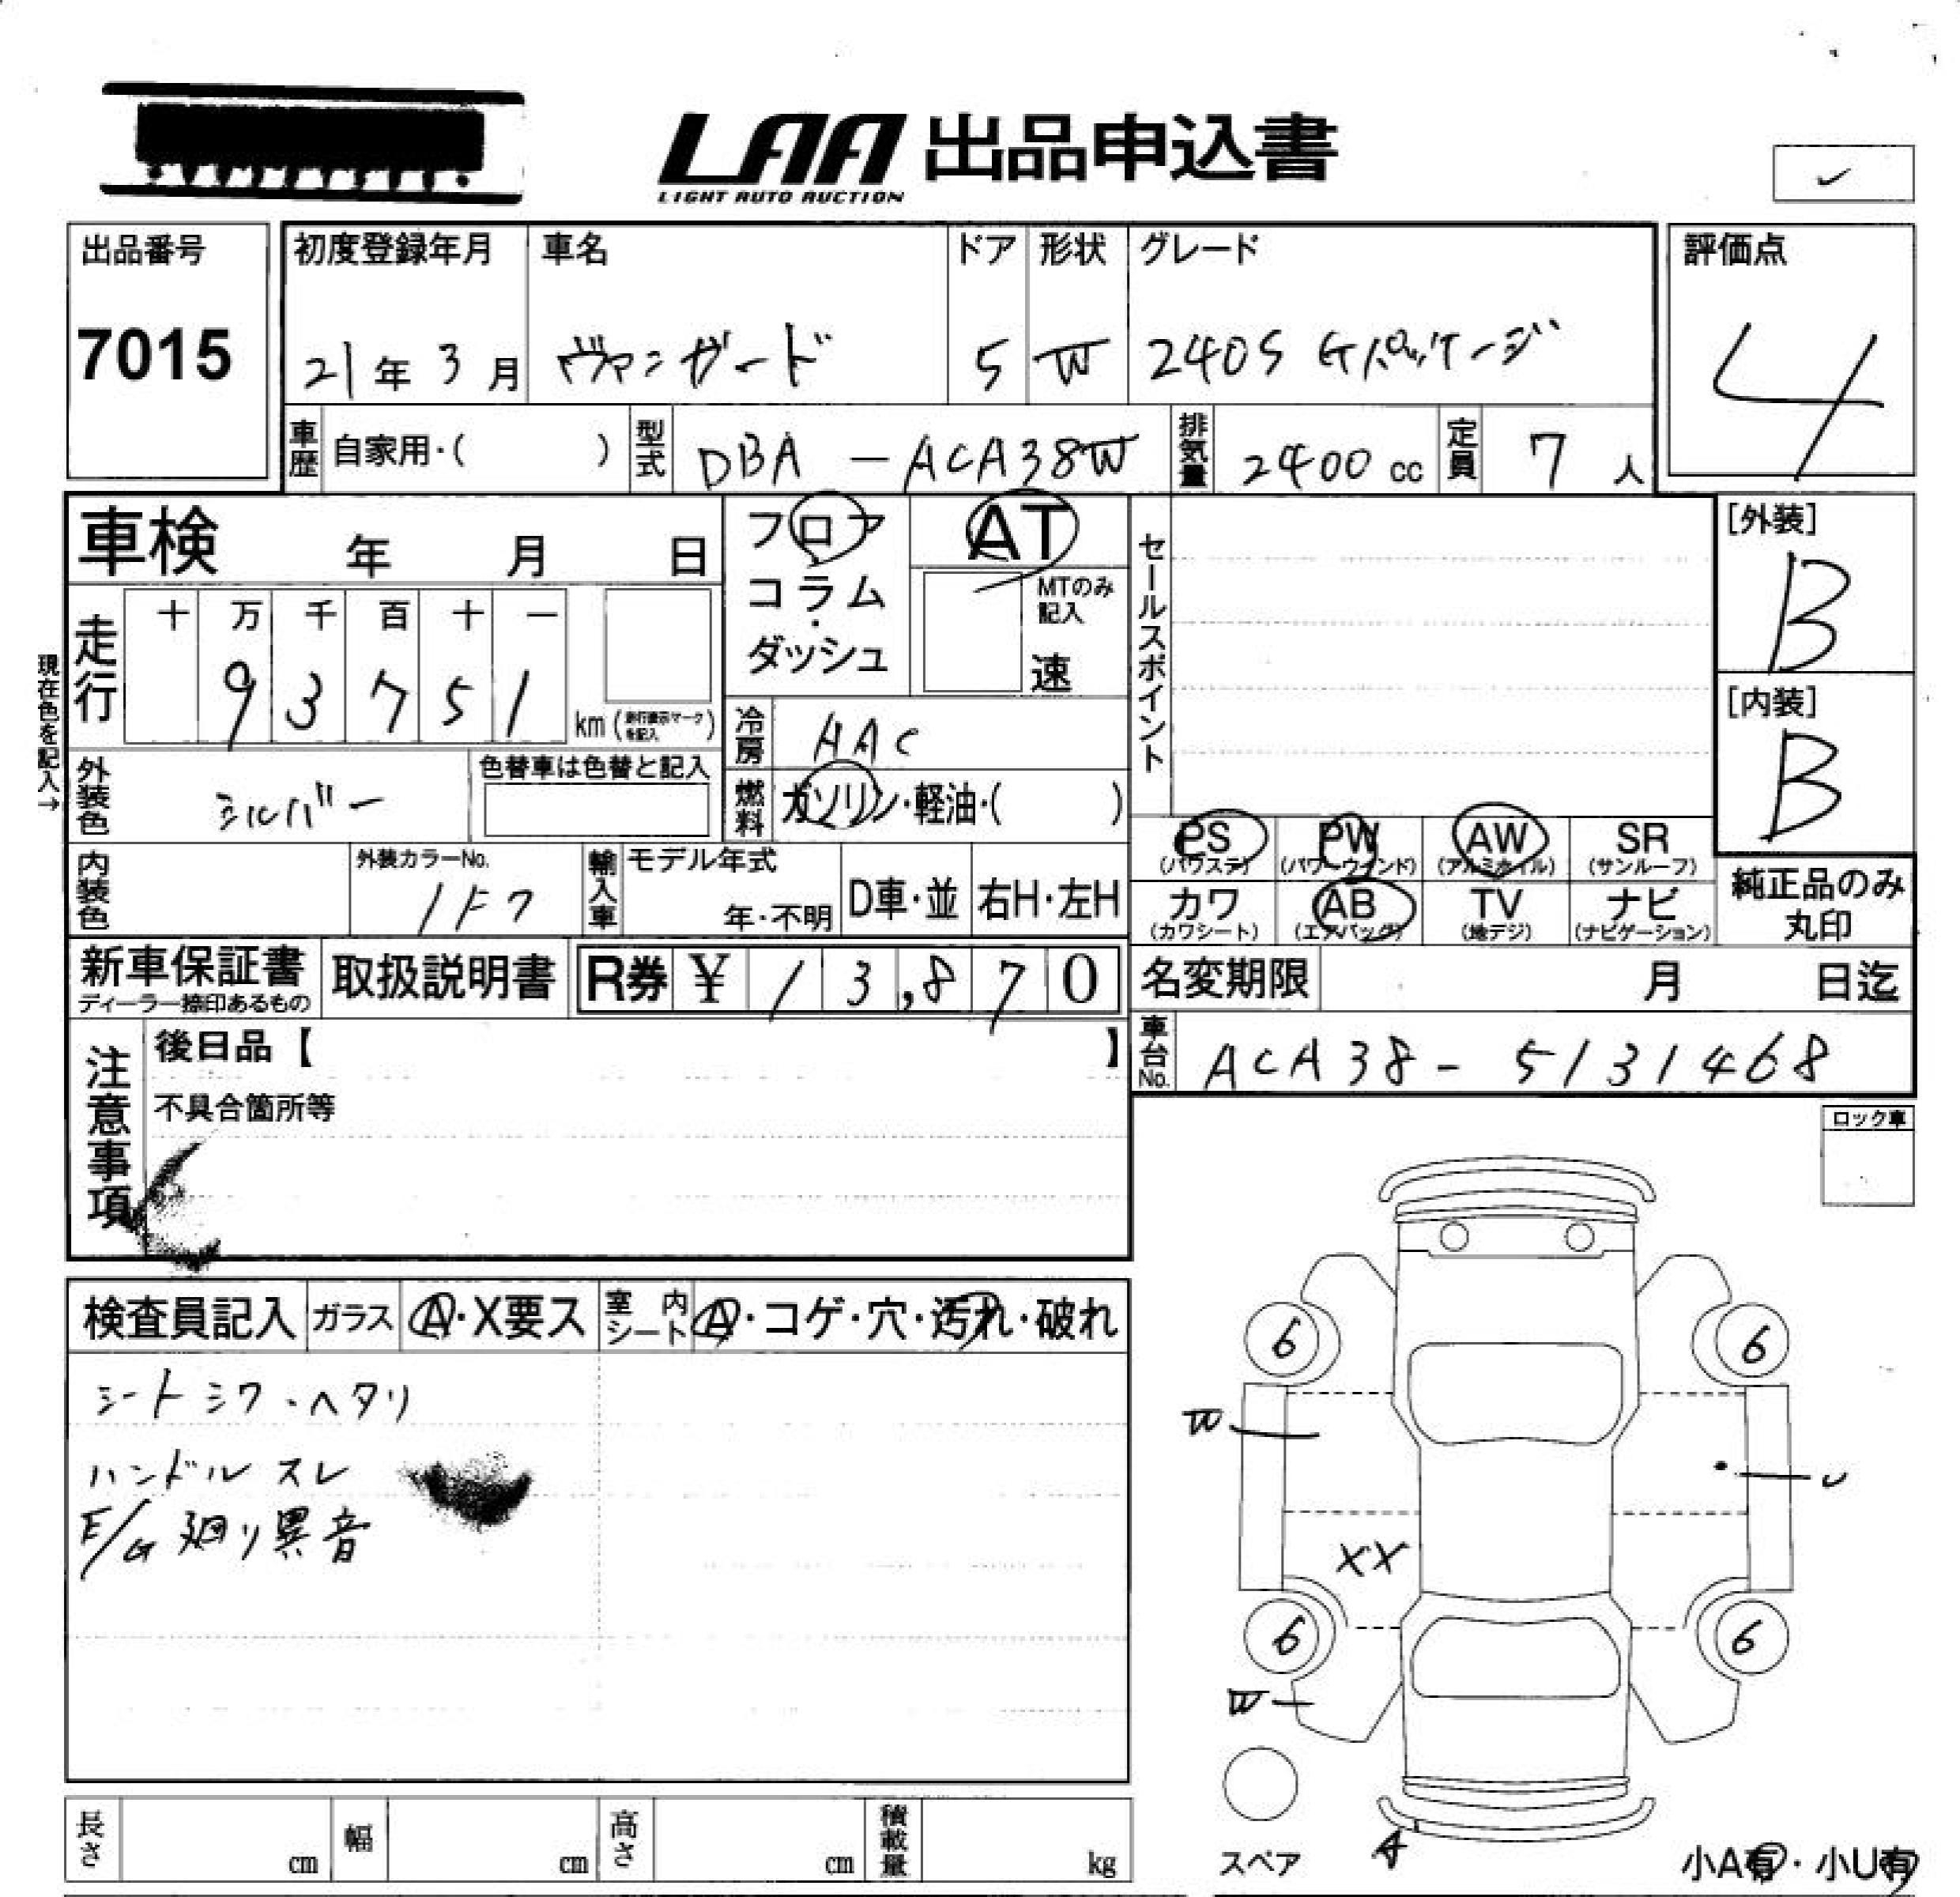 LAA 出品申込書
LIGHT AUTO AUCTION
✓
出品番号
7015
初度登録年月
21年 3月
車名
ヴァンガード
ドア
5
形状
W
グレード
240S Gパッケージ
評価点
4
車歴 自家用・( )
型式 DBA-ACA38W
排気量 2400 cc
定員 7 人
車検 年 月 日
フロア
コラム
・
ダッシュ
AT
MTのみ
記入
速
セールスポイント
[外装]
B
[内装]
B
現在色を記入→
走行
十 万 千 百 十 一
9 3 7 5 1
km (走行表示マークを記入)
冷房 HAC
外装色 シルバー
色替車は色替と記入
燃料 ガソリン・軽油・( )
PS
(パワステ)
PW
(パワーウインド)
AW
(アルミホイル)
SR
(サンルーフ)
カワ
(カワシート)
AB
(エアバッグ)
TV
(地デジ)
ナビ
(ナビゲーション)
純正品のみ
丸印
内装色
外装カラーNo.
1F7
輸入車
モデル年式
年・不明
D車・並
右H・左H
新車保証書
ディーラー捺印あるもの
取扱説明書
R券 ¥ 1 3,8 7 0
名変期限 月 日迄
車台No. ACA38-5131468
注意事項
後日品【 】
不具合箇所等
ロック車
検査員記入
ガラス A・X要ス
室内シート A・コゲ・穴・汚れ・破れ
シートシワ・ヘタリ
ハンドルスレ
E/G廻り異音
6 6
W
U
XX
6 6
W
A
スペア
小A有・小U有
長さ cm
幅 cm
高さ cm
積載量 kg